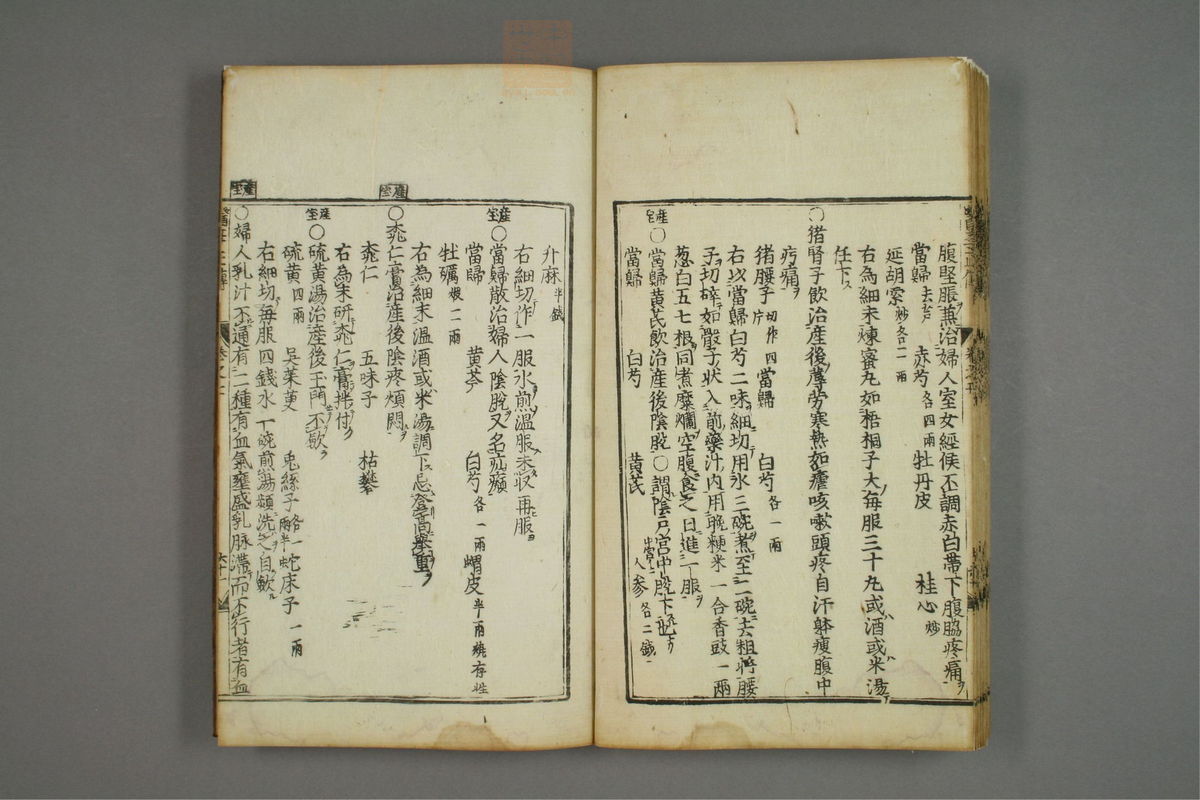 腹堅脹兼治婦人室女經候不調赤白帶下腹脇疼痛
當歸去芦 赤芍各四兩 牡丹皮 桂心炒
延胡索炒各二兩
右為細末煉蜜丸如梧桐子大每服三十九或酒或米湯
任下
○猪腎子飲治產後蓐劳寒熱如瘧咳嗽頭疼自汗躰痩腹中
疞痛
猪腰子切作四片 當歸 白芍各一兩
右以當歸白芍二味細切用水三碗煮至二碗去粗將腰
子切碎如骰子状入前藥汁内用晚粳米一合香豉一兩
葱白五七根同煮糜爛空腹食之日進一服
產宝
○當歸黄芪飲治產後陰脫○謂陰戸宮中脫下也
當歸 白芍 黄芪 人参各二錢
升麻半錢
右細切作一服水煎温服未収再服
產宝
○當歸散治婦人陰脫又名㿗癩
當歸 黄芩 白芍各一兩 蝟皮半兩燒存性
牡礪煅一二兩
右為細末温酒或米湯調下忌登高舉重
產宝
○桃仁膏治產後陰疼煩悶
桃仁 五味子 枯礬
右為末研桃仁膏拌付
產宝
○硫黄湯治產後玉門不歛
硫黄四兩 吳茱萸 兎絲子各一兩半 蛇床子一兩
右細切每服四錢水一碗煎湯頻洗之自歛
產宝
○婦人乳汁不通有二種有血氣壅盛乳脉滯而不行者有血